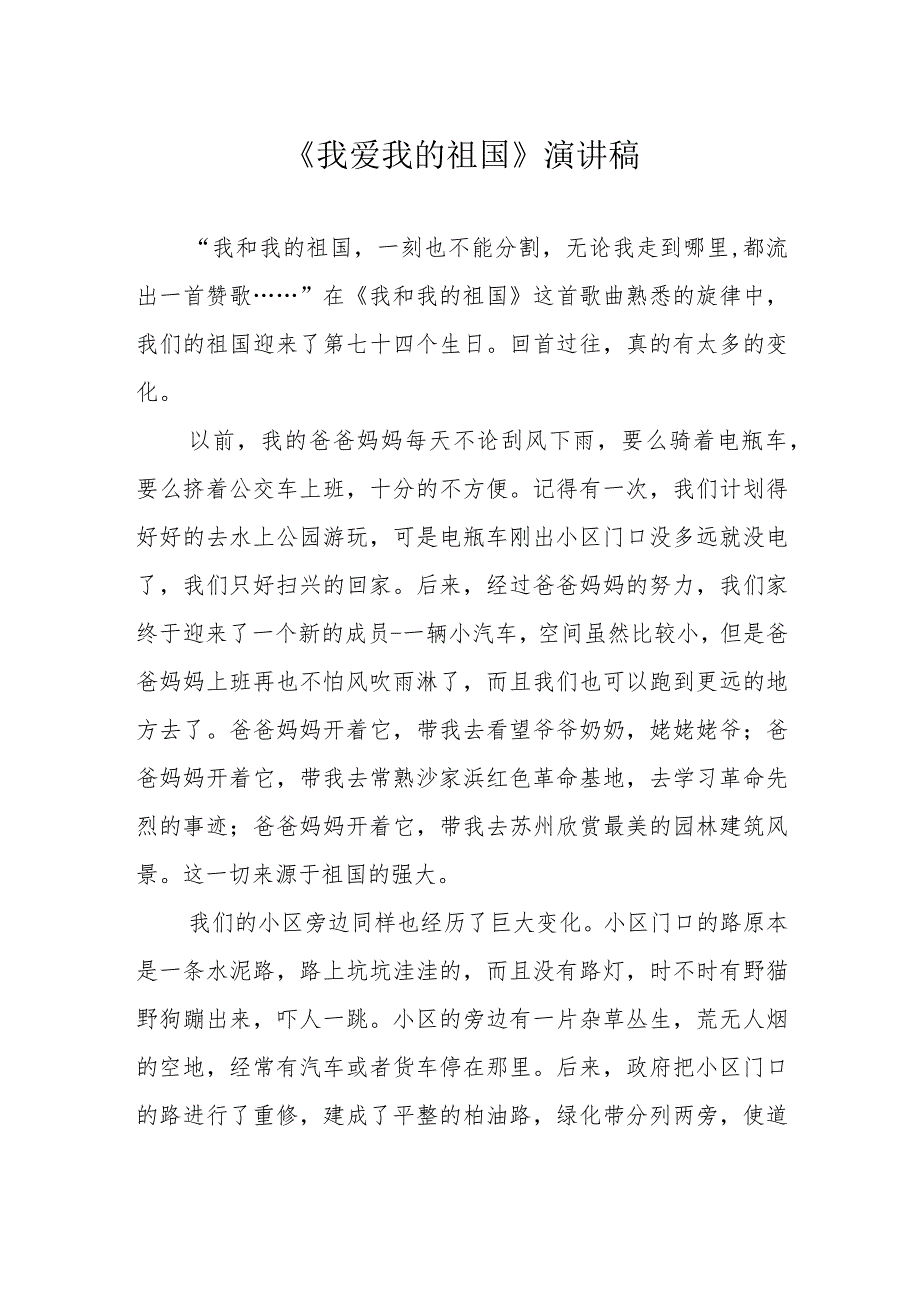 《我爱我的祖国》演讲稿
“我和我的祖国，一刻也不能分割，无论我走到哪里,都流
出一首赞歌……”在《我和我的祖国》这首歌曲熟悉的旋律中，
我们的祖国迎来了第七十四个生日。回首过往，真的有太多的变
化。
以前，我的爸爸妈妈每天不论刮风下雨，要么骑着电瓶车，
要么挤着公交车上班，十分的不方便。记得有一次，我们计划得
好好的去水上公园游玩，可是电瓶车刚出小区门口没多远就没电
了，我们只好扫兴的回家。后来，经过爸爸妈妈的努力，我们家
终于迎来了一个新的成员-一辆小汽车，空间虽然比较小，但是爸
爸妈妈上班再也不怕风吹雨淋了，而且我们也可以跑到更远的地
方去了。爸爸妈妈开着它，带我去看望爷爷奶奶，姥姥姥爷；爸
爸妈妈开着它，带我去常熟沙家浜红色革命基地，去学习革命先
烈的事迹；爸爸妈妈开着它，带我去苏州欣赏最美的园林建筑风
景。这一切来源于祖国的强大。
我们的小区旁边同样也经历了巨大变化。小区门口的路原本
是一条水泥路，路上坑坑洼洼的，而且没有路灯，时不时有野猫
野狗蹦出来，吓人一跳。小区的旁边有一片杂草丛生，荒无人烟
的空地，经常有汽车或者货车停在那里。后来，政府把小区门口
的路进行了重修，建成了平整的柏油路，绿化带分列两旁，使道